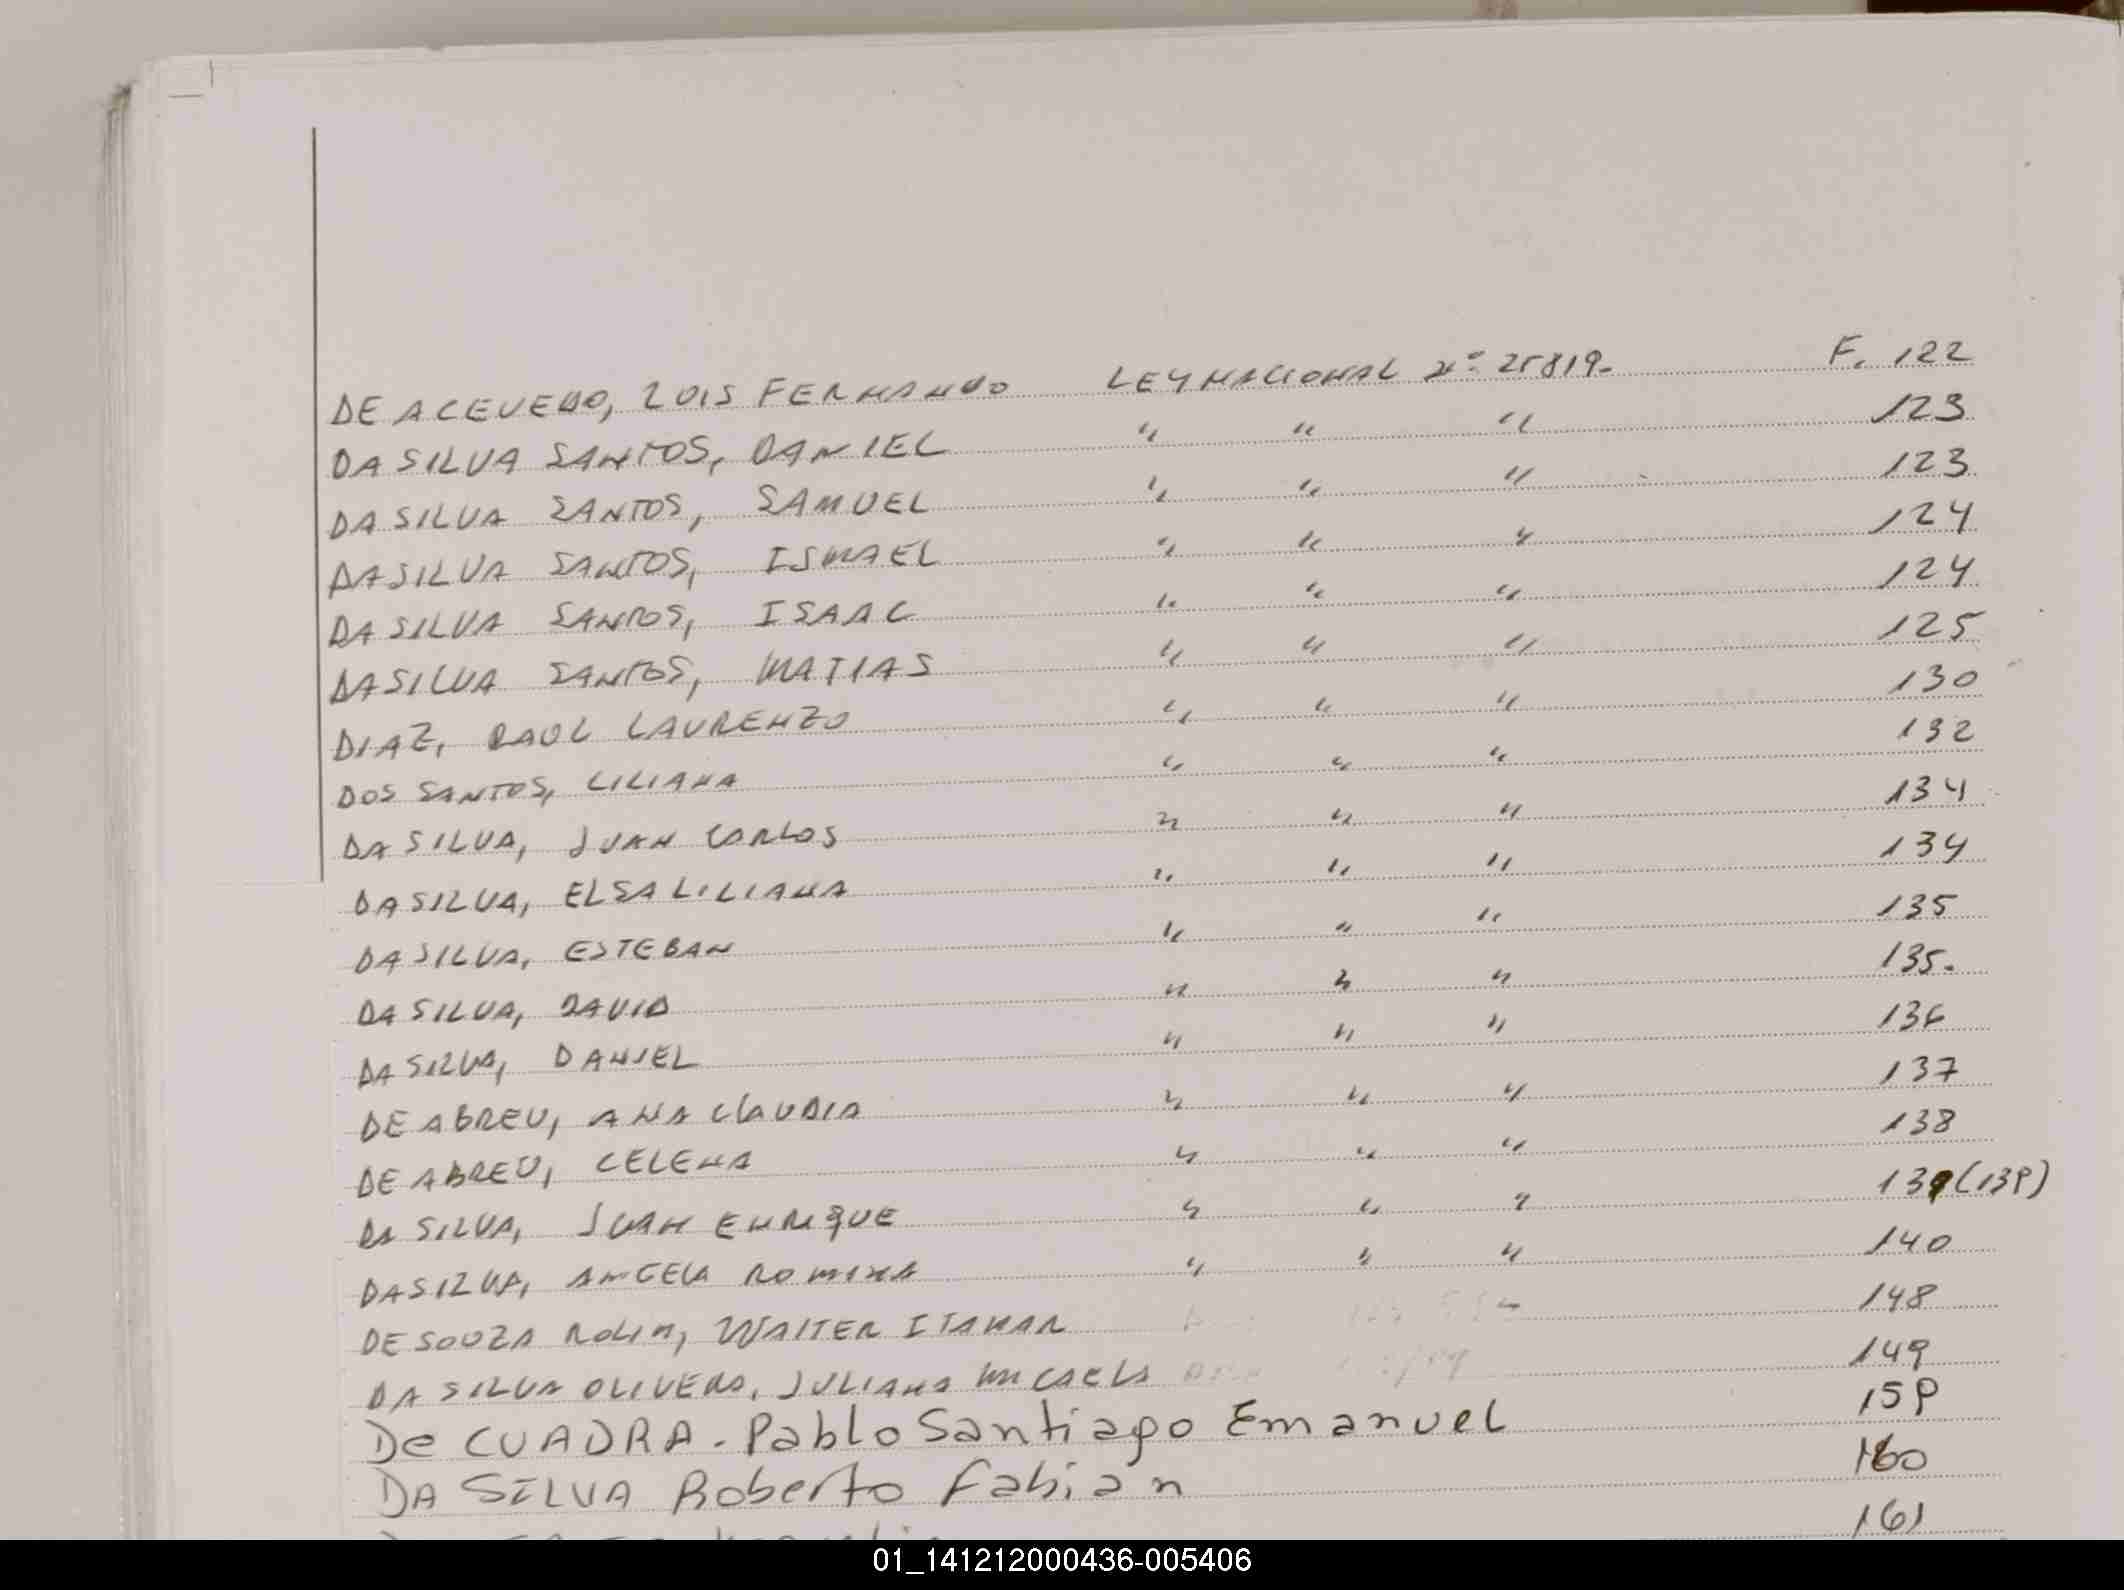 DE ACEVEDO, LUIS FERNANDO LEY NACIONAL Nº 25819. F. 122
DA SILVA SANTOS, DANIEL " " " 123
DA SILVA SANTOS, SAMUEL " " " 123
DA SILVA SANTOS, ISMAEL " " " 124
DA SILVA SANTOS, ISAAC " " " 124
DA SILVA SANTOS, MATIAS " " " 125
DIAZ, RAUL LAURENZO " " " 130
DOS SANTOS, LILIANA " " " 132
DA SILVA, JUAN CARLOS " " " 134
DA SILVA, ELSA LILIANA " " " 134
DA SILVA, ESTEBAN " " " 135
DA SILVA, DAVID " " " 135.
DA SILVA, DANIEL " " " 136
DE ABREU, ANA CLAUDIA " " " 137
DE ABREU, CELENA " " " 138
DA SILVA, JUAN ENRIQUE " " " 139 (139)
DA SILVA, ANGELA ROMINA " " " 140
DE SOUZA ROLIM, WALTER ITAMAR 148
DA SILVA OLIVERA, JULIANA MICAELA 149
De CUADRA. Pablo Santiago Emanuel 159
DA SILVA Roberto Fabian 160
161
01_141212000436-005406